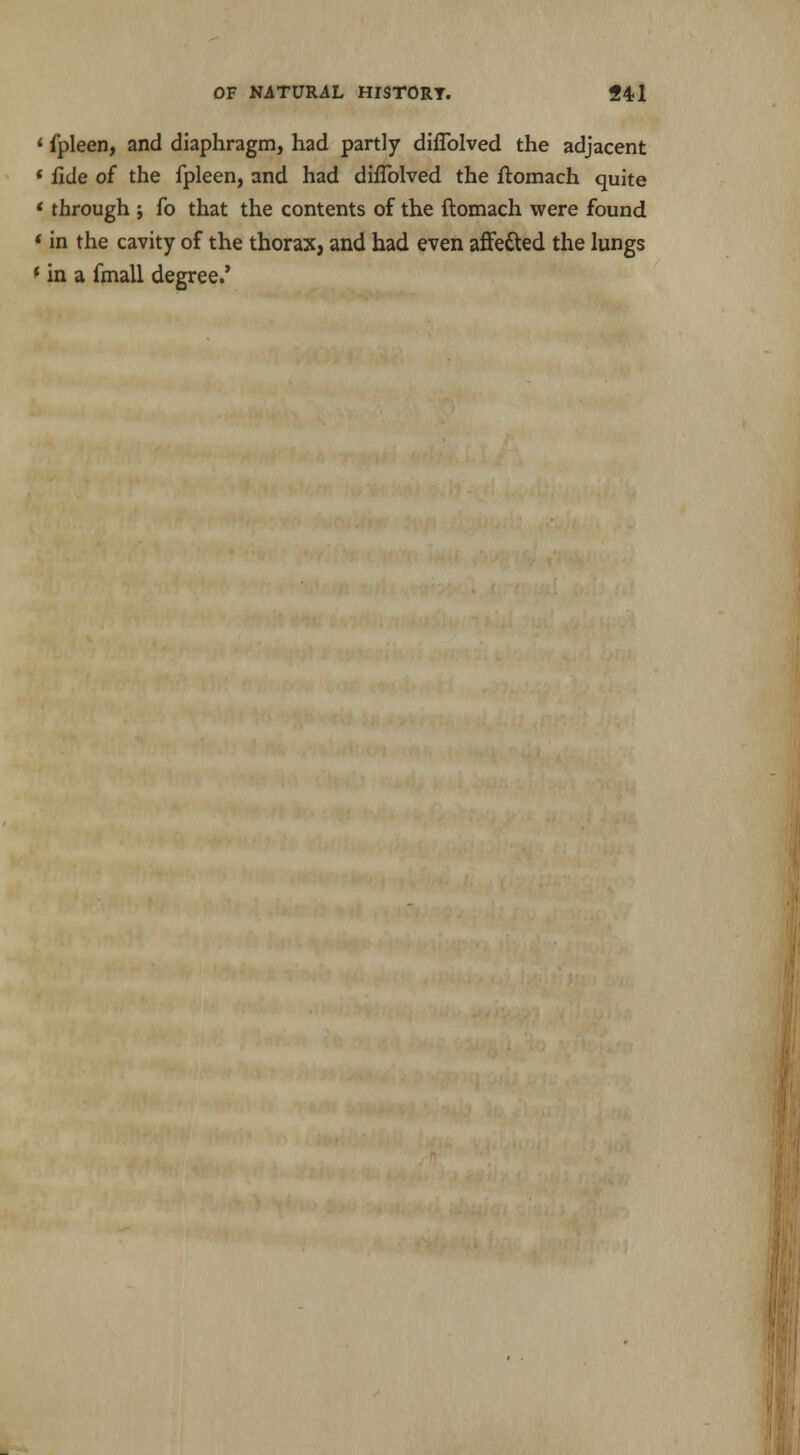 OF NATURAL HISTORY. 241
‘ ſpleen, and diaphragm, had partly diſſolved the adjacent
‘ ſide of the ſpleen, and had diſſolved the ſtomach quite
‘ through ; ſo that the contents of the ſtomach were found
‘ in the cavity of the thorax, and had even affected the lungs
‘ in a ſmall degree.’